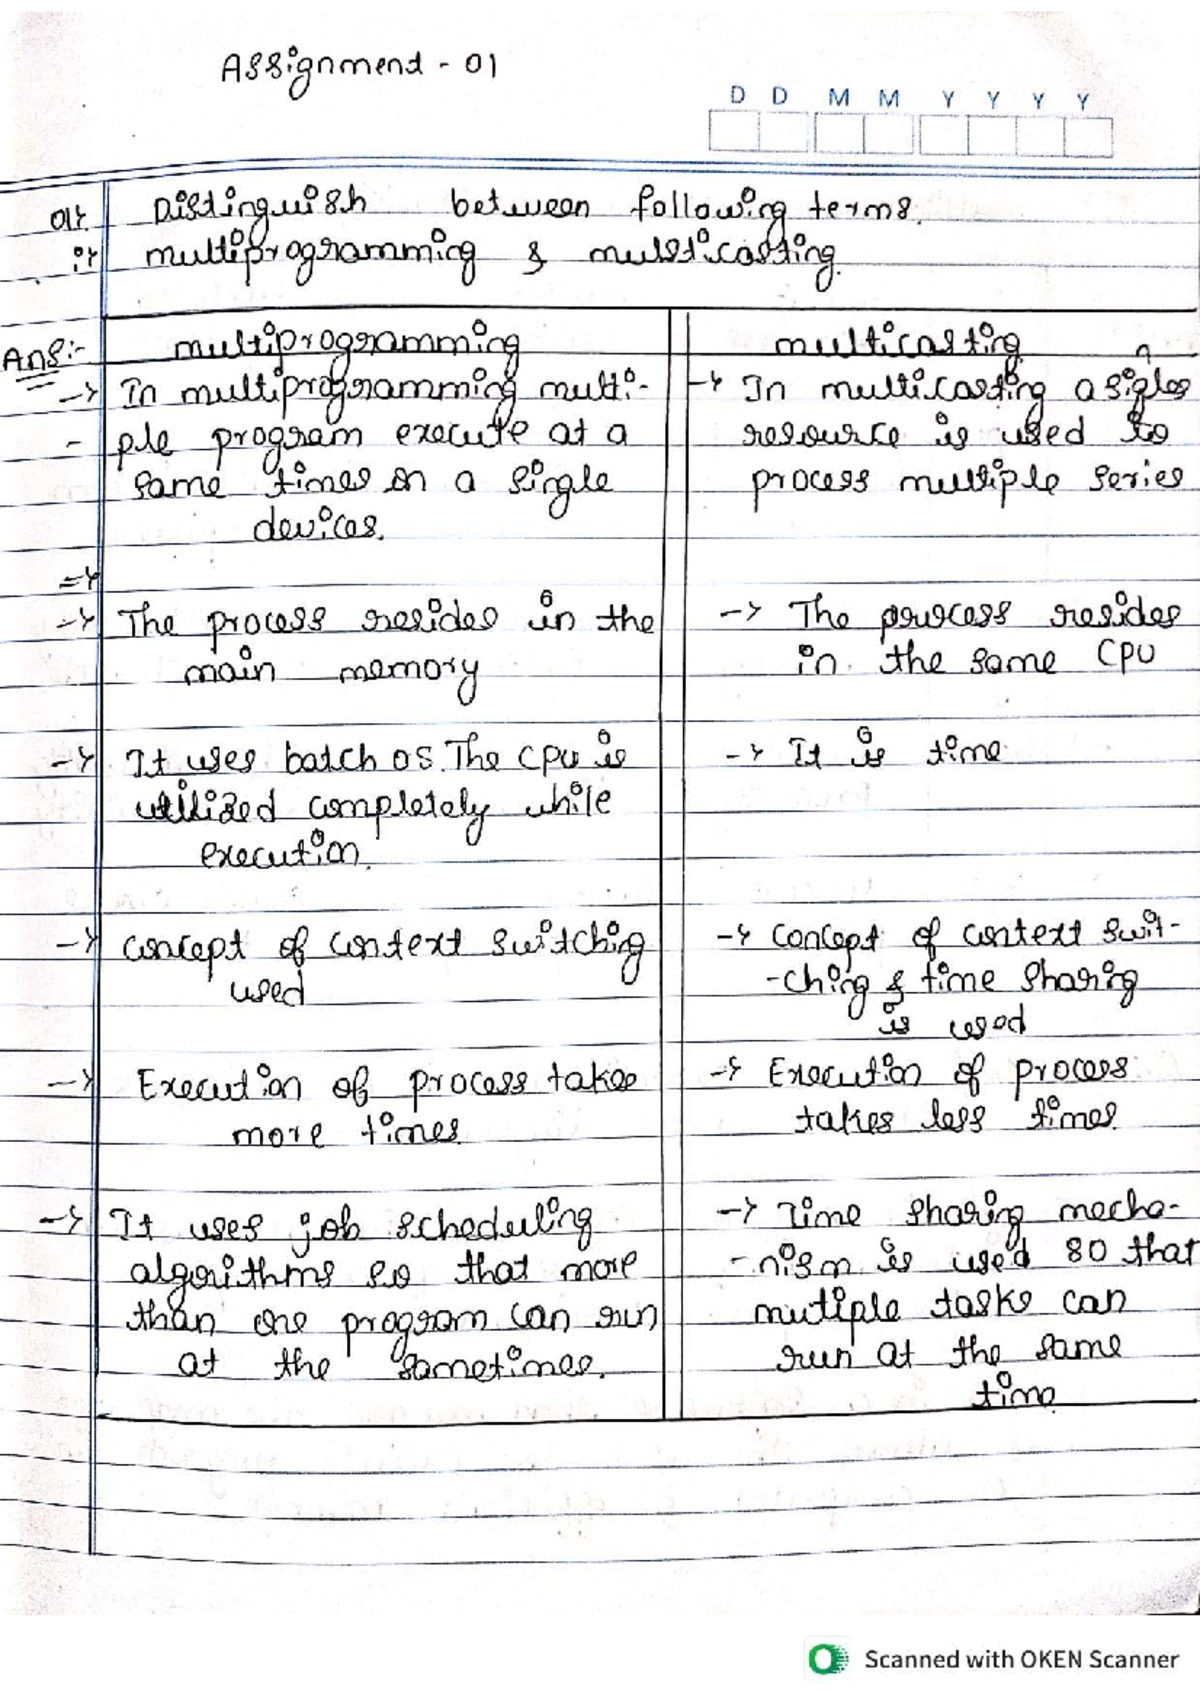 Assignment - 01
D D M M Y Y Y Y
01> Distinguish between following terms.
i> multiprogramming & multicasting.
Ans:- multiprogramming
-> In multiprogramming multi-
- ple program execute at a
same times on a single
devices.
=>
-> The process resides in the
main memory
-> It uses batch OS. The CPU is
utilized completely while
execution.
-> concept of context switching
used
-> Execution of process takes
more times.
-> It uses job scheduling
algorithms so that more
than one program can run
at the sametimes.
multicasting
-> In multicasting a singles
resource is used to
process multiple series
-> The process resides
in the same CPU
-> It is time
-> Concept of context swit-
-ching & time sharing
is used
-> Execution of process
takes less times.
-> Time sharing mecha-
-nism is used so that
mutiple tasks can
run at the same
time
Scanned with OKEN Scanner